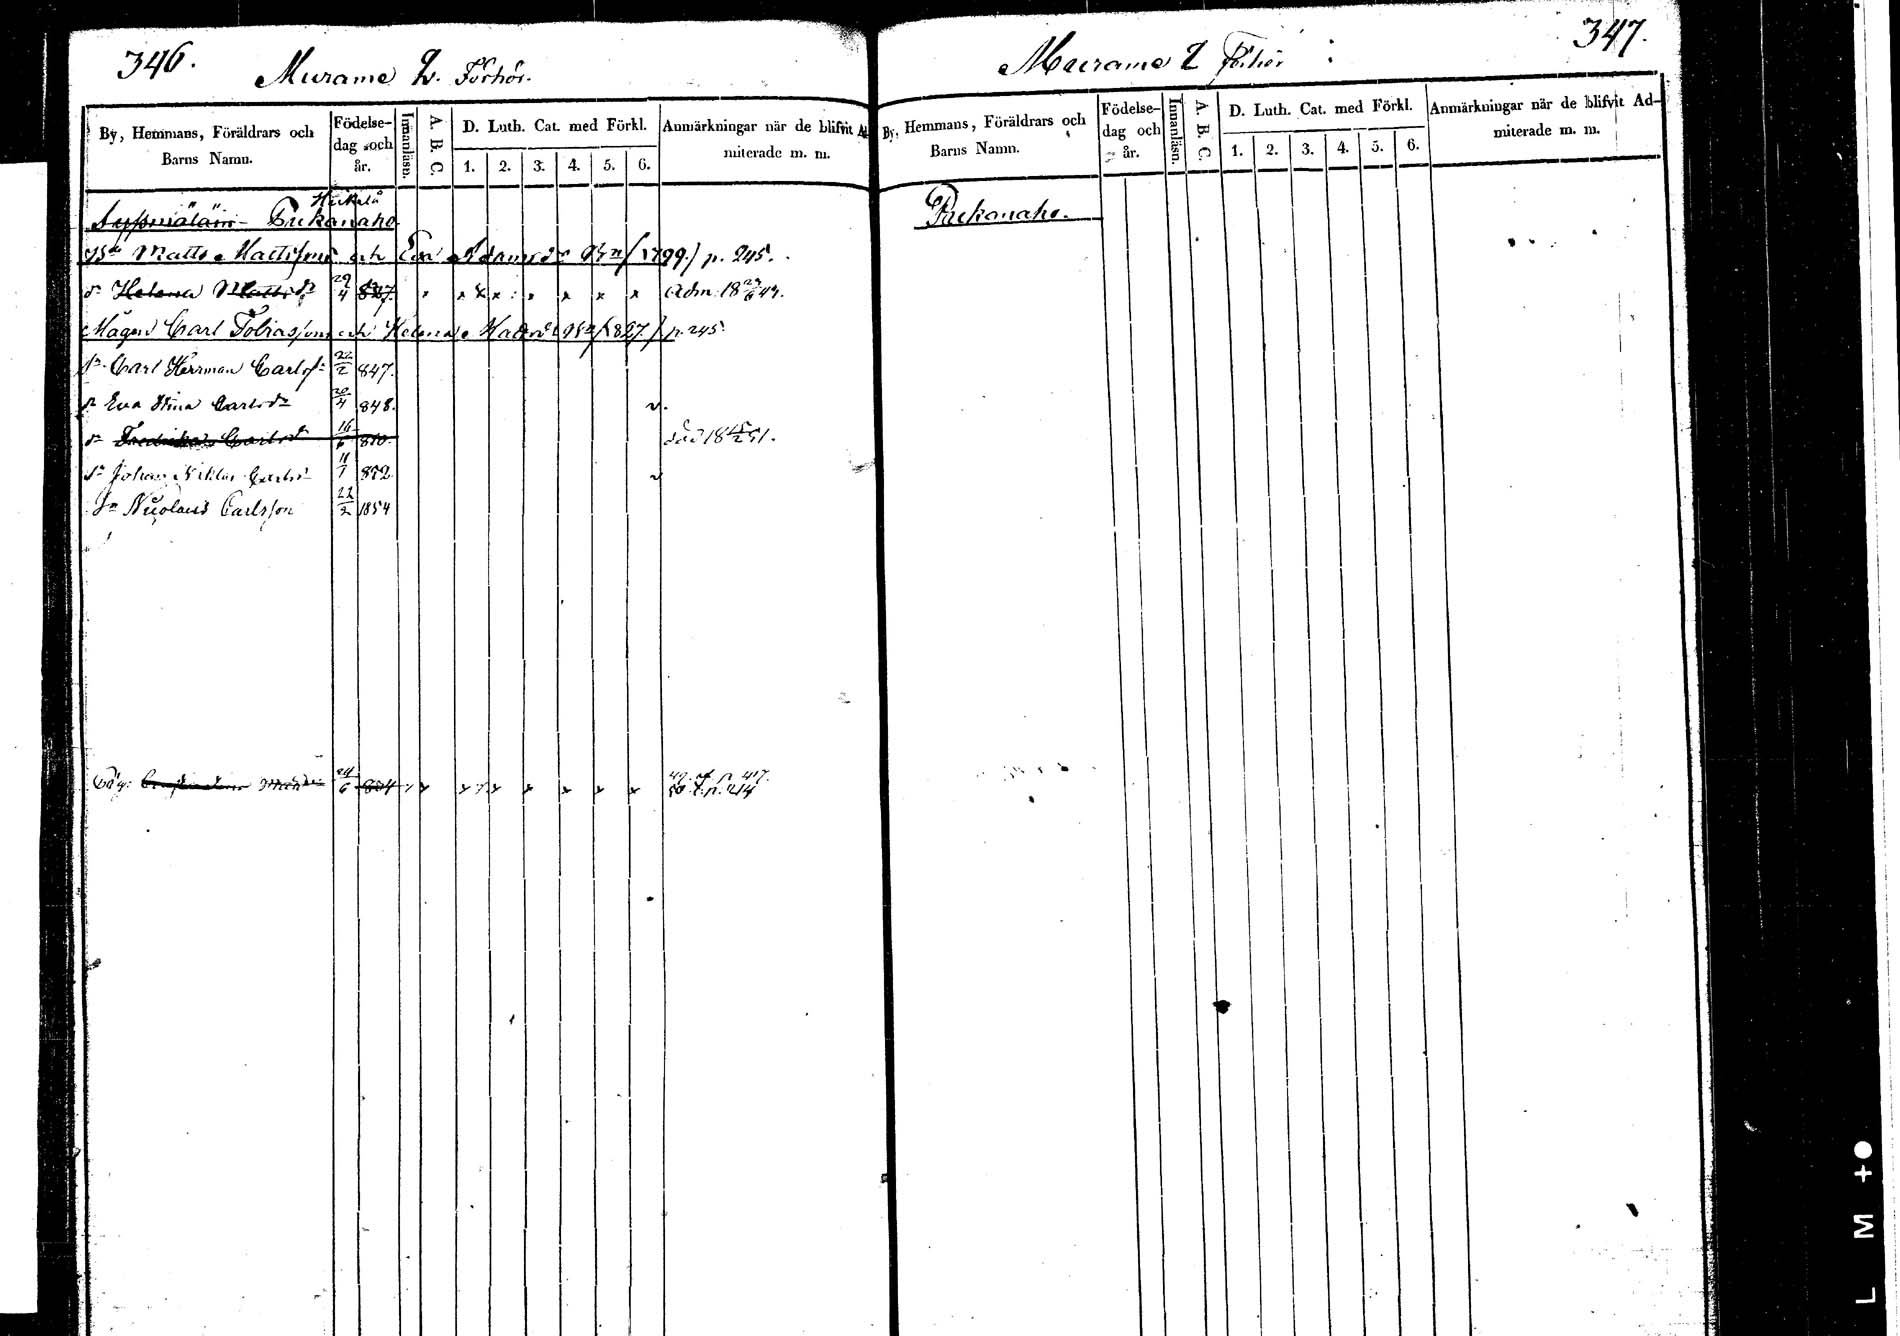 346.
Murame 2. Förhör.
By, Hemmans, Föräldrars och Barns Namn.
Födelse-dag och år.
Innanläsn.
A. B. C
D. Luth. Cat. med Förkl.
1. 2. 3. 4. 5. 6.
Anmärkningar när de blifvit Admiterade m. m.
Pukanaho
Matts Mattsson och Eva Adamsdr (1799) p. 245.
dr Helena Mattsdr 29/4 827. x x x x x x Adm. 18
Mågen Carl Tobiasson och Helena Mattsdr (827) p. 245
sn Carl Herrman Carlss 22/2 847.
dr Eva Stina Carlsdr 20/4 848. v.
dr Fredrika Carlsdr 16/6 850 död 18 51.
sn Johan Niklas Carlss 11/1 852 v
Sn Nicolaus Carlsson 22/2 1854
24/6 804 x x x x x x x x 49. p. 417.
p. 214
347.
Murame 2 Förhör
By, Hemmans, Föräldrars och Barns Namn.
Födelse-dag och år.
Innanläsn.
A. B. C
D. Luth. Cat. med Förkl.
1. 2. 3. 4. 5. 6.
Anmärkningar när de blifvit Ad-miterade m. m.
Pukanaho.
L M +